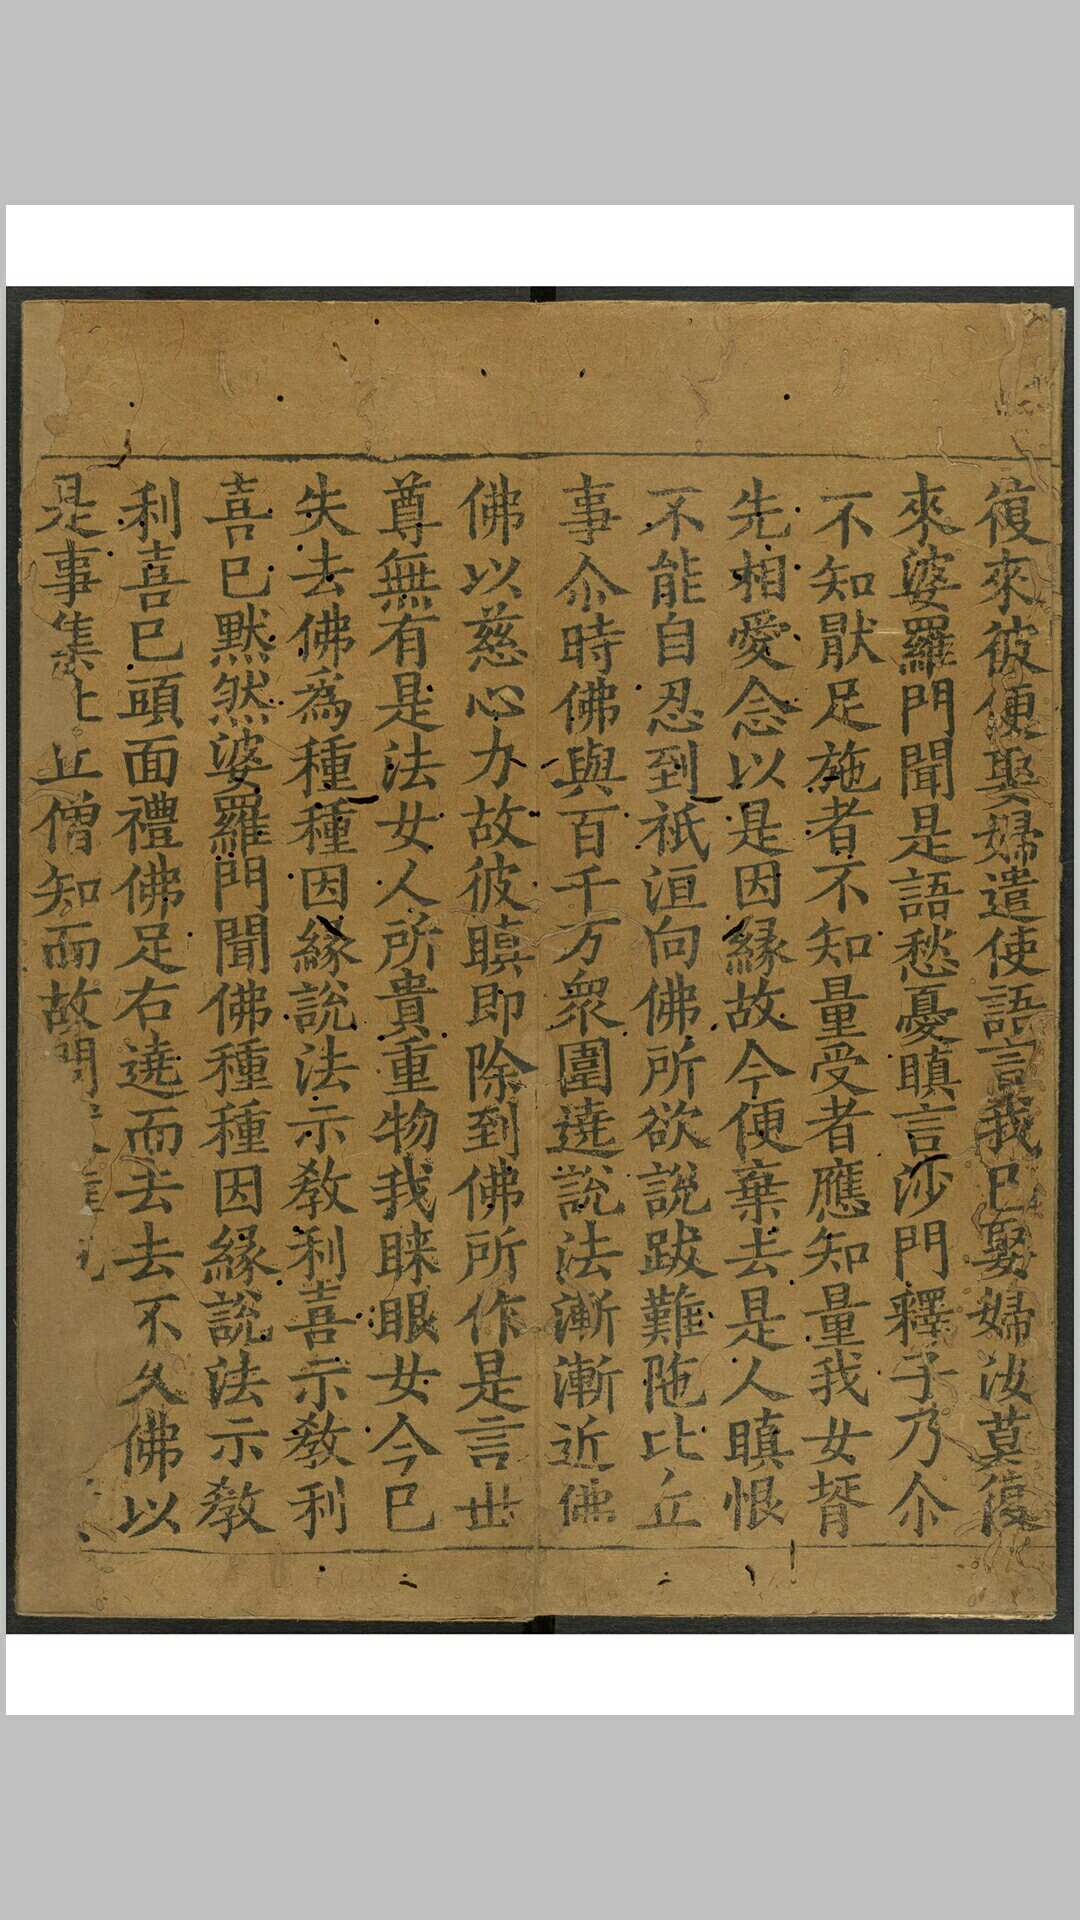 復來彼便娶婦遣使語言我已娶婦汝莫復
來婆羅門聞是語愁憂瞋言沙門釋子乃尒
不知猒足施者不知量受者應知量我女壻
先相愛念以是因緣故今便棄去是人瞋恨
不能自忍到祇洹向佛所欲說跋難陁比丘
事尒時佛與百千万衆圍遶說法漸漸近佛
佛以慈心力故彼瞋即除到佛所作是言世
尊無有是法女人所貴重物我睞眼女今已
失去佛爲種種因緣說法示教利喜示教利
喜已默然婆羅門聞佛種種因緣說法示教
利喜已頭面禮佛足右遶而去去不久佛以
是事集比丘僧知而故問